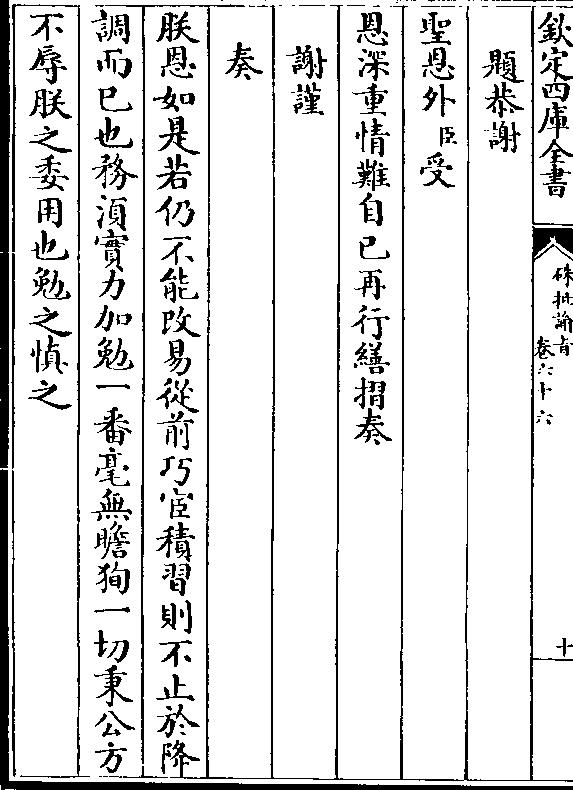 欽定四庫全書
硃批諭旨
卷六十六
十
題恭謝
聖恩外臣受
恩深重情難自已再行繕摺奏
謝謹
奏
朕恩如是若仍不能改易從前巧宦積習則不止於降
調而已也務湏實力加勉一番毫無瞻狥一切秉公方
不辱朕之委用也勉之慎之